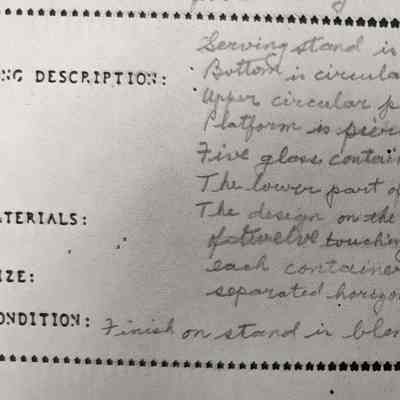 Serving stand is
NG DESCRIPTION: Bottom is circula
Upper circular p
Platform is pier
Five glass contain
The lower part of
ATERIALS: The design on the
of twelve touching
each container
IZE:
separated horizon
ONDITION: Finish on stand is blem